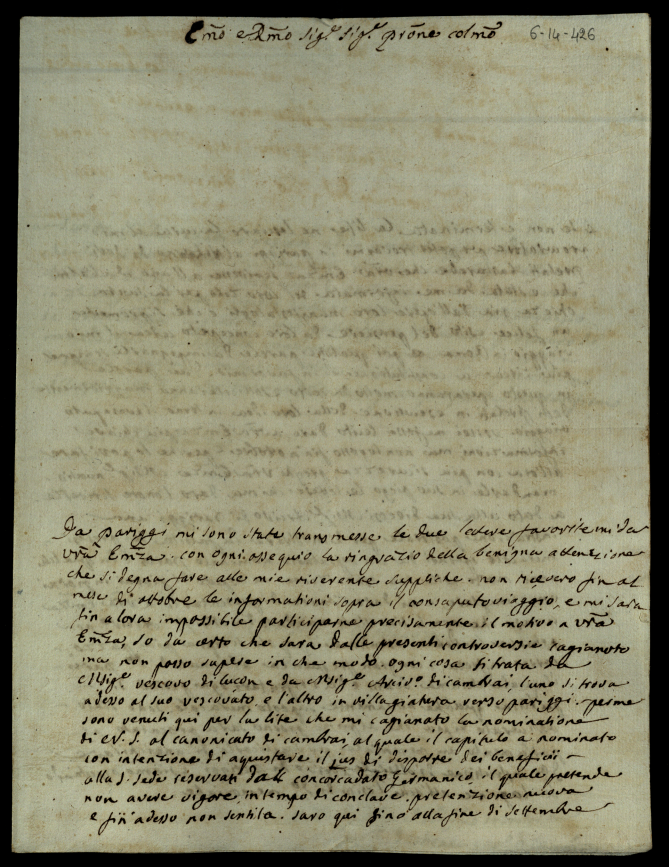 Emo e Rmo Sigr. Sigr. prōne colmo 6-14-426
Da pariggi mi sono state transmesse le due letere favoritemi da
vra Emza. con ogni ossequio la ringrazio della benigna attenzione
che si degna fare alle mie riverente suppliche. non ricevero fin al
mese di ottobre le informationi sopra il consaputo viaggio, e mi sara
fin alora impossibile participarne precisamente il motivo a vra
Emza, so da certo che sara dalle presenti controversie cagionato
ma non posso sapere in che modo. ogni cosa si trata da
Msigr. vescovo di lucon e da Msigr. Arciv. di cambrai, l'uno si trova
adesso al suo vescovato, e l'altro in villagiatura verso pariggi. perme
sono venuti qui per la lite che mi cagionato la nominatione
di V. S. al canonicato di cambrai, al quale il capitulo a nominato
con intenzione di aquistare il jus di disporre dei beneficii
alla S. Sede reservati dall concorcadato Germanico, il quale pretende
non avere vigore in tempo di conclave. pretenzione nuova
e fin adesso non sentita. saro qui fino alla fine di settembre